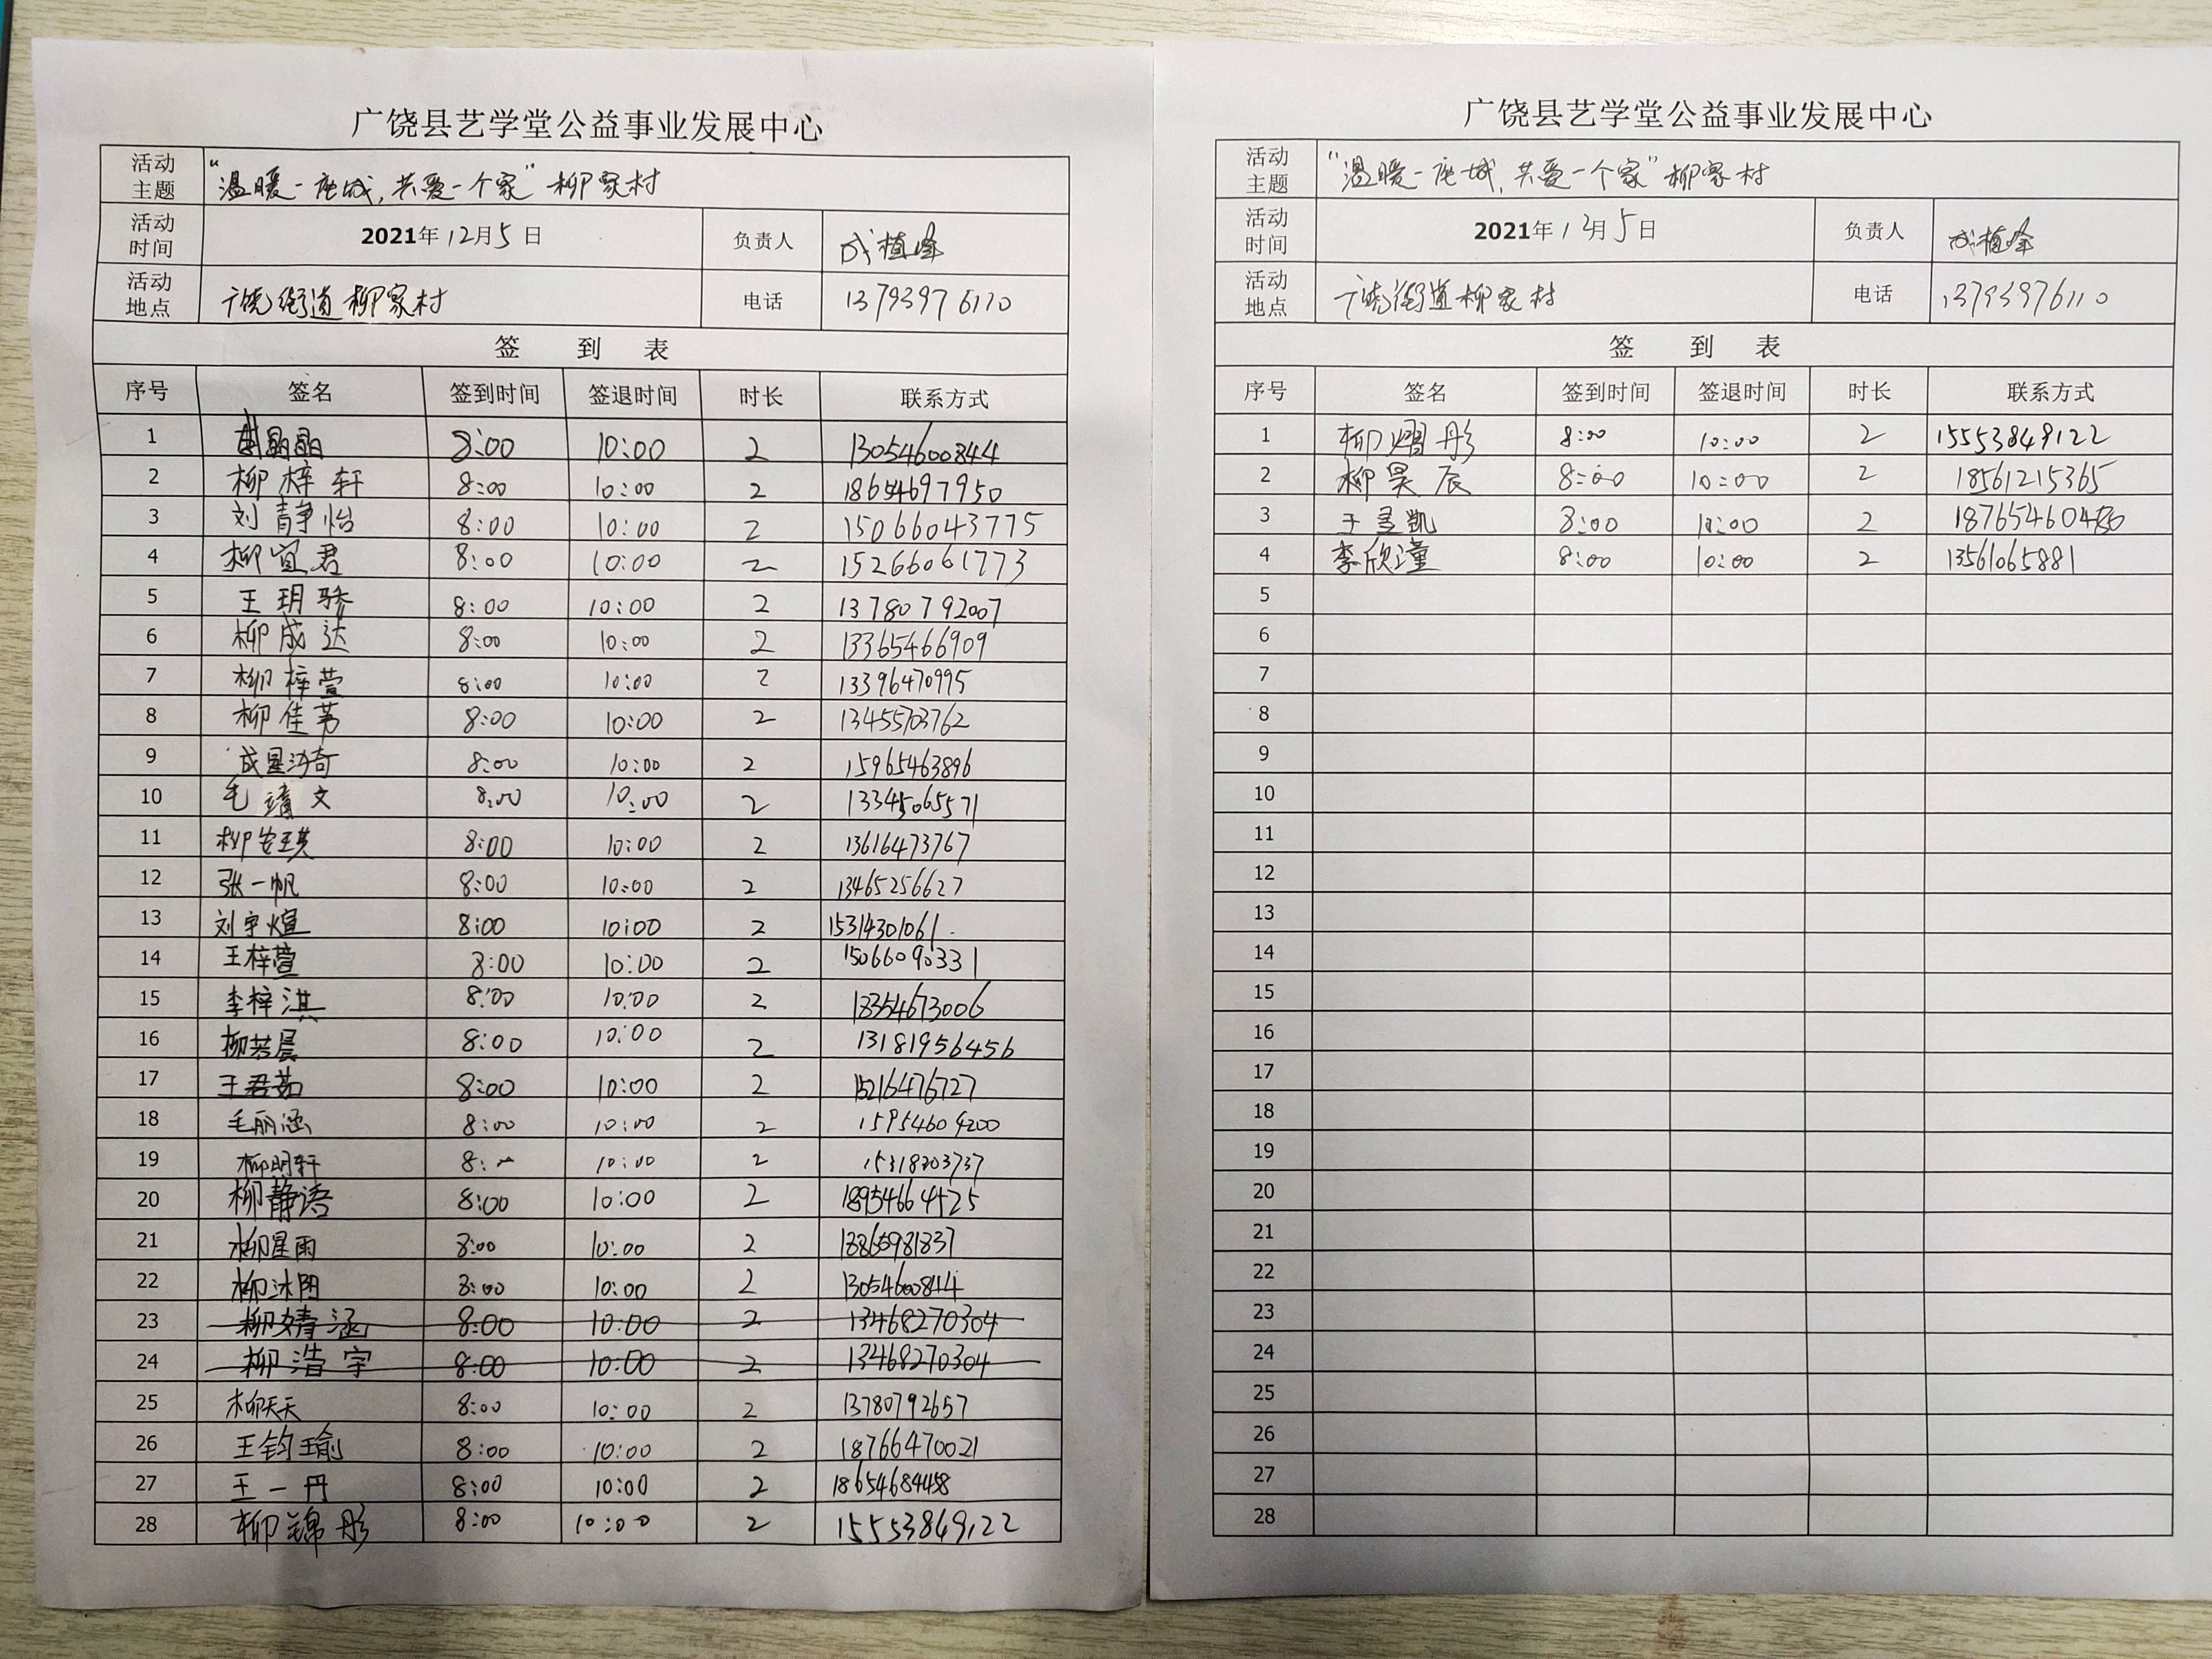 广饶县艺学堂公益事业发展中心
活动主题 “温暖一座城,共爱一个家”柳家村
活动时间 2021年12月5日 负责人 成植峰
活动地点 广饶街道柳家村 电话 13793976110
签 到 表
序号 签名 签到时间 签退时间 时长 联系方式
1 晶晶 8:00 10:00 2 13054600844
2 柳梓轩 8:00 10:00 2 18654697950
3 刘静怡 8:00 10:00 2 15066043775
4 柳宜君 8:00 10:00 2 15266061773
5 王玥骄 8:00 10:00 2 13780792007
6 柳成达 8:00 10:00 2 13365466909
7 柳梓萱 8:00 10:00 2 13396470995
8 柳佳 8:00 10:00 2 13455703762
9 成星 8:00 10:00 2 15965463896
10 毛靖文 8:00 10:00 2 13345065571
11 柳安琪 8:00 10:00 2 13616473767
12 张一帆 8:00 10:00 2 13465256627
13 刘宇煊 8:00 10:00 2 15314301061
14 王梓萱 8:00 10:00 2 15066090331
15 李梓淇 8:00 10:00 2 18354673006
16 柳若晨 8:00 10:00 2 13181956456
17 王君茹 8:00 10:00 2 15216476727
18 毛丽涵 8:00 10:00 2 15954604200
19 柳明轩 10:00 2 15318203737
20 柳静语 8:00 10:00 2 18954664425
21 柳星雨 8:00 10:00 2
22 柳沐阳 8:00 10:00 2 13054600844
23 柳婧涵 8:00 10:00 2 13468270304
24 柳浩宇 8:00 10:00 2 13468270304
25 柳天天 8:00 10:00 2 13780792657
26 王钧瑜 8:00 10:00 2 18766470021
27 王一丹 8:00 10:00 2 18654684458
28 柳锦彤 8:00 10:00 2 15553849122
广饶县艺学堂公益事业发展中心
活动主题 “温暖一座城,共爱一个家”柳家村
活动时间 2021年12月5日 负责人 成植峰
活动地点 广饶街道柳家村 电话 13793976110
签 到 表
序号 签名 签到时间 签退时间 时长 联系方式
1 柳熠彤 8:00 10:00 2 15553849122
2 柳昊辰 8:00 10:00 2 18561215365
3 王孟凯 8:00 10:00 2
4 李欣潼 8:00 10:00 2 13561065881
5
6
7
8
9
10
11
12
13
14
15
16
17
18
19
20
21
22
23
24
25
26
27
28